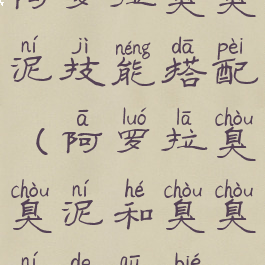 ní jì néng dā pèi
泥技能搭配
ā luó lā chòu
(阿罗拉臭
chòu ní hé chòu chòu
臭泥和臭臭
ní de qū bié